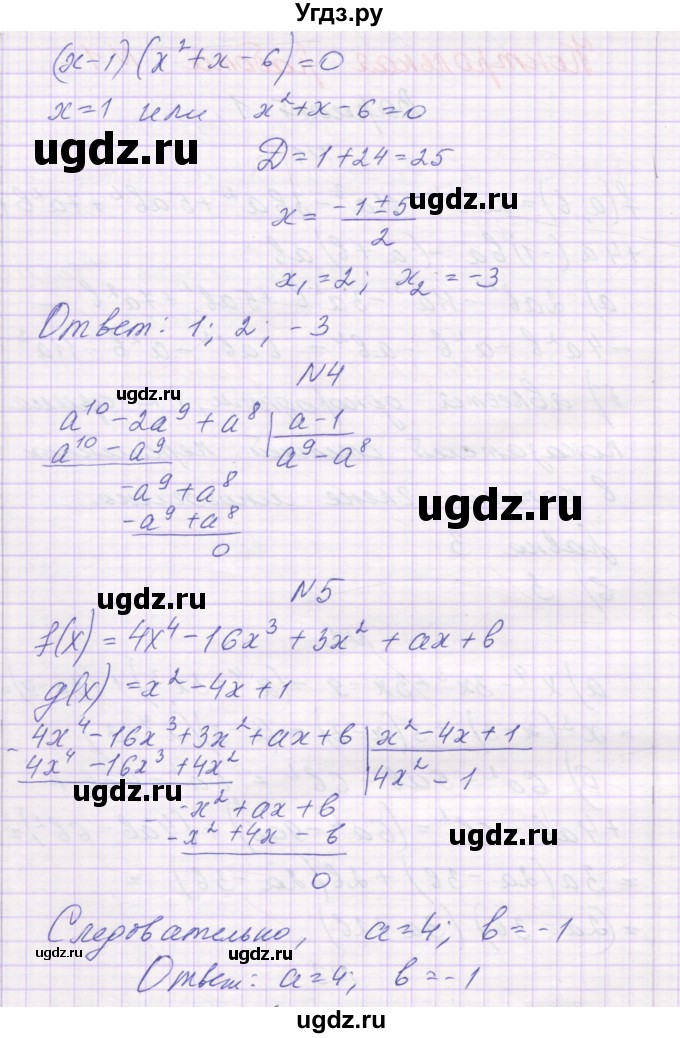 Угдз.ру
(x-1)(x²+x-6)=0
x=1 или x²+x-6=0
ugdz.ru
Д=1+24=25
x= -1±5 ugdz.ru
2
x₁=2; x₂=-3
Ответ: 1; 2; -3
N4
ugdz.ru
a¹⁰-2a⁹+a⁸ | a-1
a¹⁰-a⁹ | a⁹-a⁸
-a⁹+a⁸
ugdz.ru
-a⁹+a⁸
0
N5
ugdz.ru
f(x)=4x⁴-16x³+3x²+ax+b
g(x)=x²-4x+1
ugdz.ru
- 4x⁴-16x³+3x²+ax+b | x²-4x+1
4x⁴-16x³+4x² | 4x²-1
ugdz.ru
- -x²+ax+b
-x²+4x-b
ugdz.ru
0
Следовательно, a=4; b=-1
ugdz.ru ugdz.ru
Ответ: a=4; b=-1
ugdz.ru